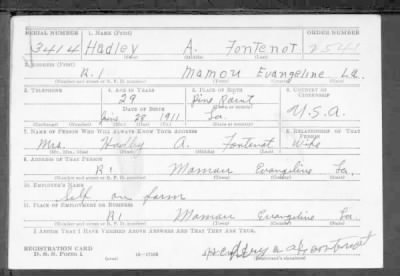 SERIAL NUMBER 1. NAME (Print) ORDER NUMBER
3414 Hadley A. Fontenot 2541
(First) (Middle) (Last)
2. ADDRESS (Print)
R.1 Mamou Evangeline La.
(Number and street or R. F. D. number) (Town) (County) (State)
3. TELEPHONE 4. AGE IN YEARS 5. PLACE OF BIRTH 6. COUNTRY OF CITIZENSHIP
29 Pine Point
DATE OF BIRTH (Town or county)
28 1911 La. U.S.A.
(Exchange) (No.) (Mo.) (Day) (Yr.) (State or country)
7. NAME OF PERSON WHO WILL ALWAYS KNOW YOUR ADDRESS 8. RELATIONSHIP OF THAT PERSON
Mrs. Hadley A. Fontenot Wife
(Mr., Mrs., Miss) (First) (Middle) (Last)
9. ADDRESS OF THAT PERSON
R1 Mamou Evangeline La.
(Number and street or R. F. D. number) (Town) (County) (State)
10. EMPLOYER'S NAME
Self on farm
11. PLACE OF EMPLOYMENT OR BUSINESS
R1 Mamou Evangeline La.
(Number and street or R. F. D. number) (Town) (County) (State)
I AFFIRM THAT I HAVE VERIFIED ABOVE ANSWERS AND THAT THEY ARE TRUE.
REGISTRATION CARD
D. S. S. FORM 1 (over) 16—17105 (Registrant's signature)